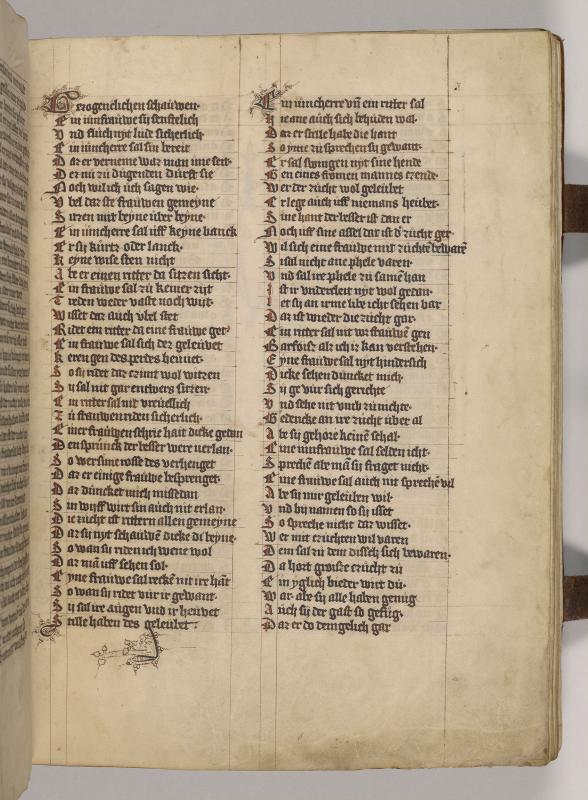 Herzogenlichen schauwen
Ein iunfrauwe sij senftelich
Vnd sůich nyt lude sicherlich
Ein iuncherre sin bereit
Daz er verneme waz man ime seit
Der nü zü dugenden dürft sie
Noch wil ich üch sagen wie
Vbel daz ste frauwen gemeyne
Sitzen mit beyne über beyne
Ein iuncherre sal uff keyne banck
Er sij kürtz oder lanck
Keyne wise sten nicht
Abe er einen ritter da sitzen sicht
Ein frauwe sal zü keiner zijt
Treden weder vaste noch wijt
Wisset daz auch vbel stet
Ridet ein ritter da eine frauwe get
Ein frauwe sal sich der geleuvet
Keren gen des perdes heuuet
So sij ridet daz czimt wol witzen
Sij sal nit gar entwers sitzen
Ein ritter sal nit vreuellich
Zü frauwen riden sicherlich
Einer frauwen schrie hait dicke gedan
Den sprünck der besser were verlan
So wer sime rosse des verhenget
Daz er einige frauwe besprenget
Daz düncket mich misstan
Sin wijff wirt sin auch nit erlan
Die zücht ist rittern allen gemeyne
Daz sij nyt schauwe dicke di beyne
So wan sij riden ich wene wol
Daz man uff sehen sol
Eyne frauwe sal recke nit ire hant
So wan sij ridet vür ir gewant
Sij sal ire augen vnd ir heuvet
Stille halten des geleubet
Ein iuncherre vn ein ritter sal
Hie ane auch sich behüden wal
Daz er stille habe die hant
So yme zü sprechen sij gewant
Er sal swingen nyt sine hende
Gen eines fromen mannes czende
Wer der zücht wol geleubet
Er lege auch uff niemans heubet
Sine hant der besser ist dan er
Noch uff sine assel daz ist d' zücht ger
Wil sich eine frauwe mit züchte bewaren
Si sal nicht ane phele varen
Vnd sal ire phele zü samen han
Ist ir vndereleit nyt wol getan
Let sij an irme libe icht sehen bar
Daz ist wieder die zücht gar
Ein ritter sal nit vor frauwen gen
Barfois als ich iz kan verstehen
Eyne frauwe sal nyt hindersich
Dicke sehen düncket mich
Sij ge vür sich gerichte
Vnd sehe nit vmb zü nichte
Gedencke an ire zücht über al
Abe sij gehore keine schal
Eine iunfrauwe sal selden icht
Spreche abe man sij fraget nicht
Eine frauwe sal auch nit spreche vil
Abe sij mir geleuben wil
Vnd bij namen so sij isset
So spreche nicht daz wisset
Wer mit czüchten wil varen
Dem sal zü dem dissch sich bewaren
Da hort groisze czücht zü
Ein yglich bieder wirt dü
War abe sij alle haben genüg
Auch sij der gast so gefüg
Daz er do dem gelich gar